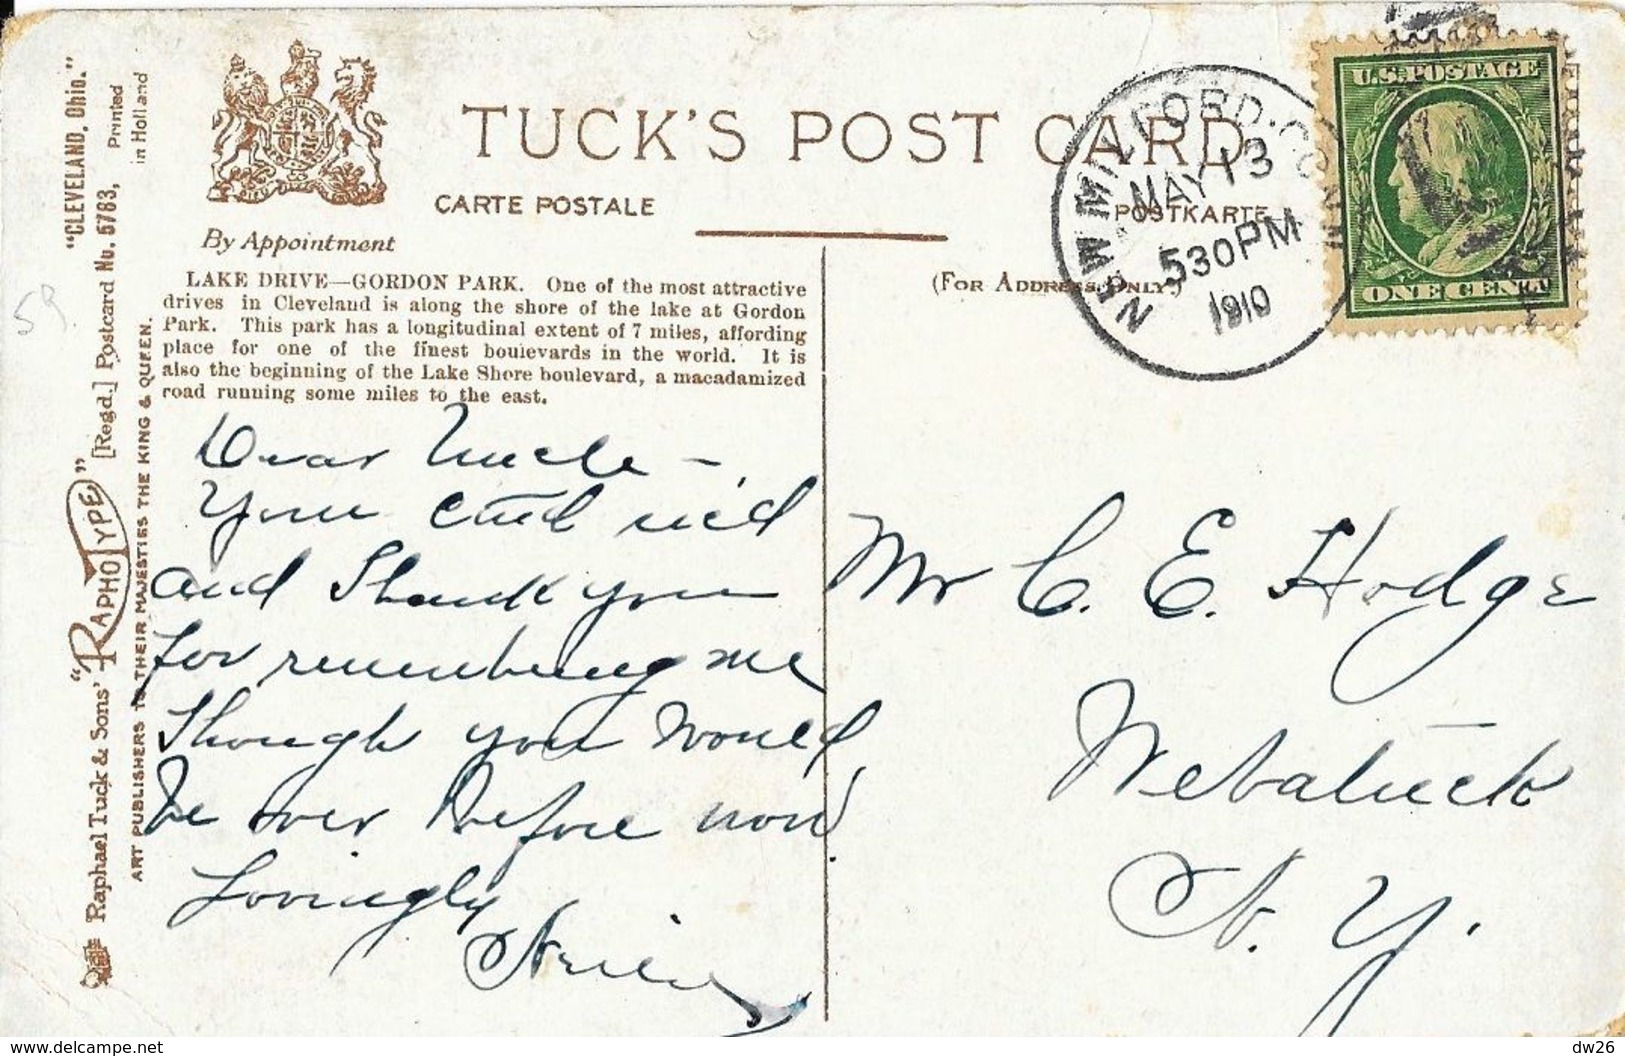 TUCK'S POST CARD
CARTE POSTALE
POSTKARTE
By Appointment
(FOR ADDRESS ONLY)
LAKE DRIVE—GORDON PARK. One of the most attractive
drives in Cleveland is along the shore of the lake at Gordon
Park. This park has a longitudinal extent of 7 miles, affording
place for one of the finest boulevards in the world. It is
also the beginning of the Lake Shore boulevard, a macadamized
road running some miles to the east.
Dear Uncle —
Your card rec'd
and Thank you
for remembering me
Though you would
be over before now
Lovingly
NEW MILFORD, CONN
MAY 13
530PM
1910
U.S. POSTAGE
ONE CENT
Mr C. E. Hodge
Webatuck
N. Y.
"CLEVELAND, Ohio."
Raphael Tuck & Sons' "RAPHOTYPE" [Regd.] Postcard No. 5783,
Printed
in Holland
ART PUBLISHERS TO THEIR MAJESTIES THE KING & QUEEN.
59
dw26
https://www.delcampe.net